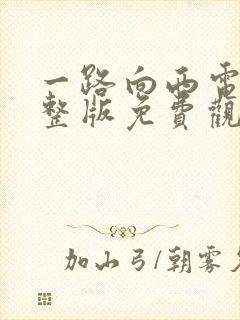 一路向西電
整版免費觀
加山弓/朝雾